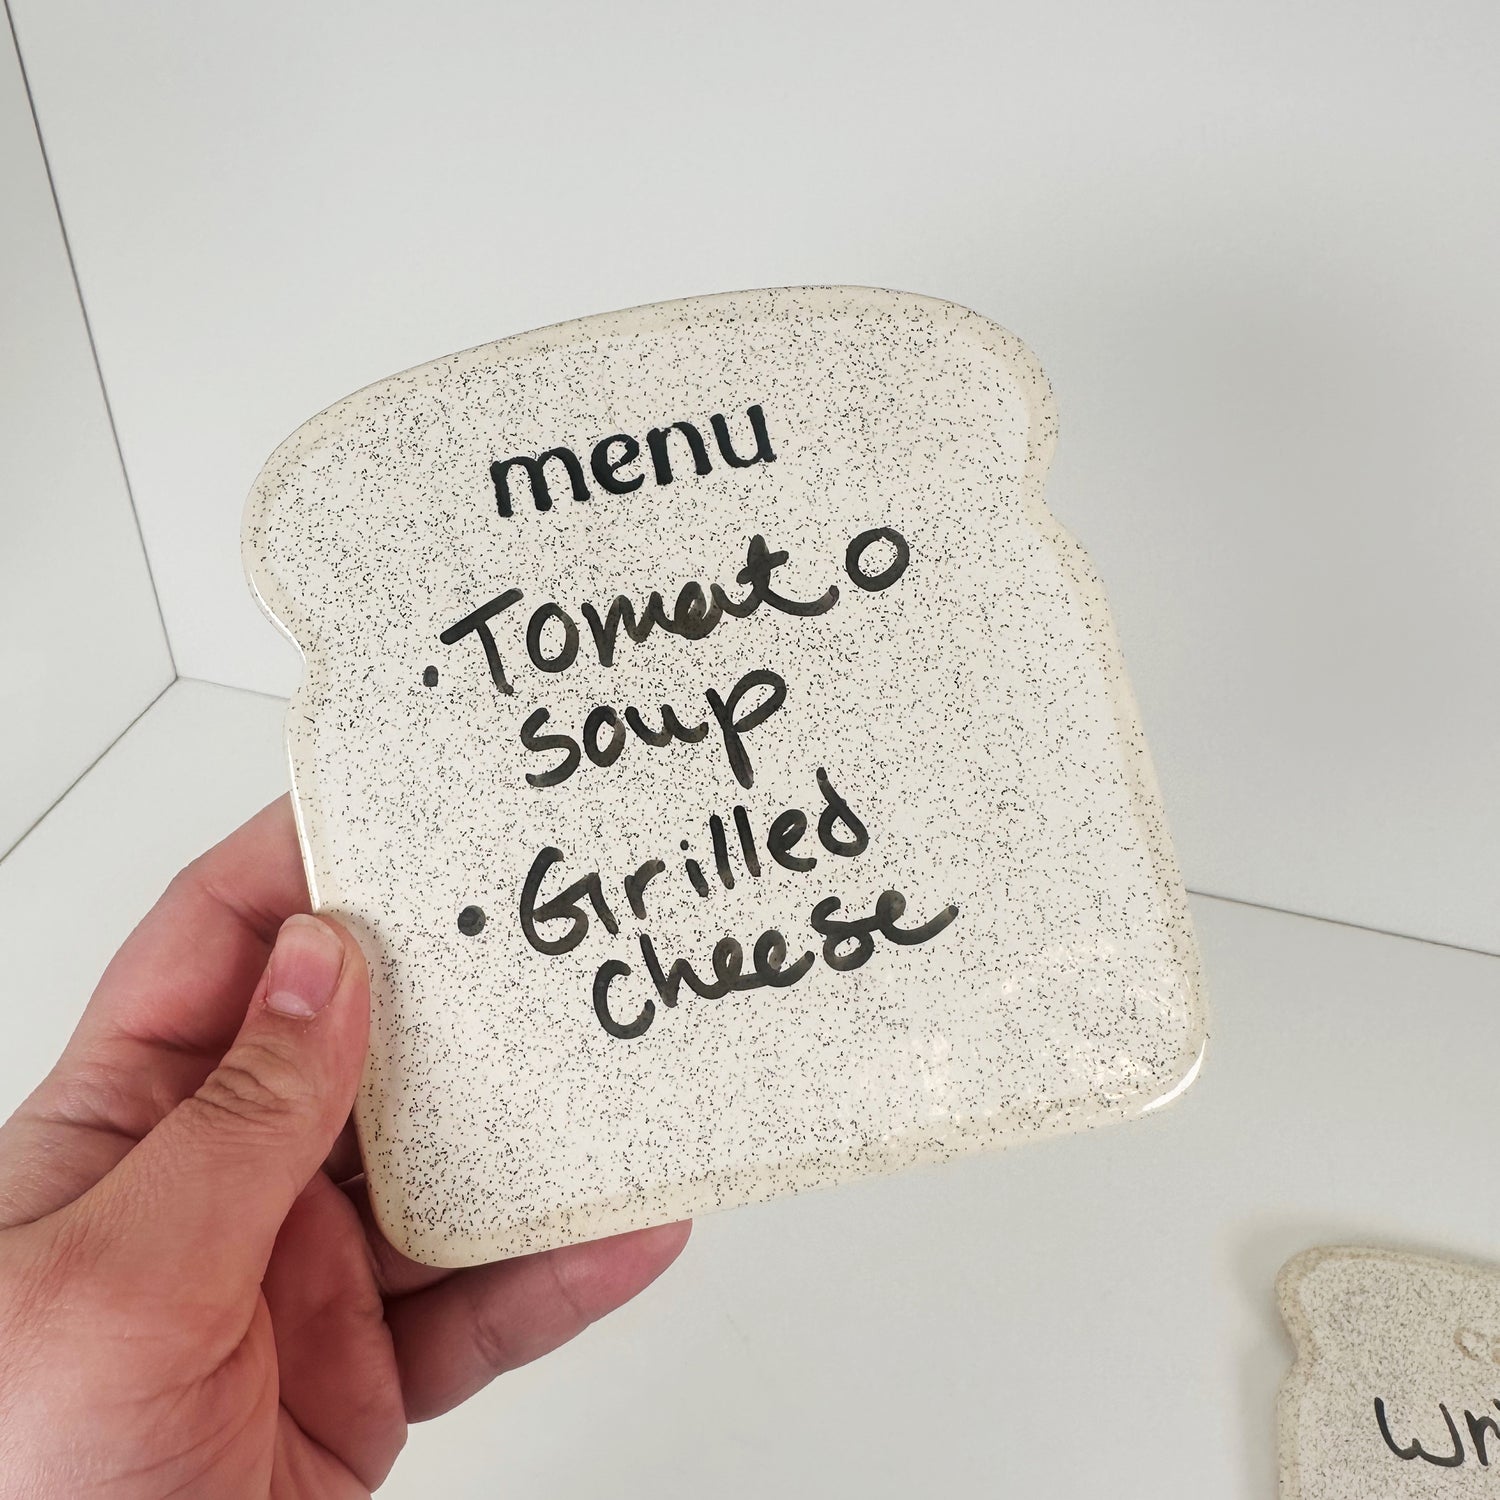 menu
• Tomato
soup
• Grilled
cheese